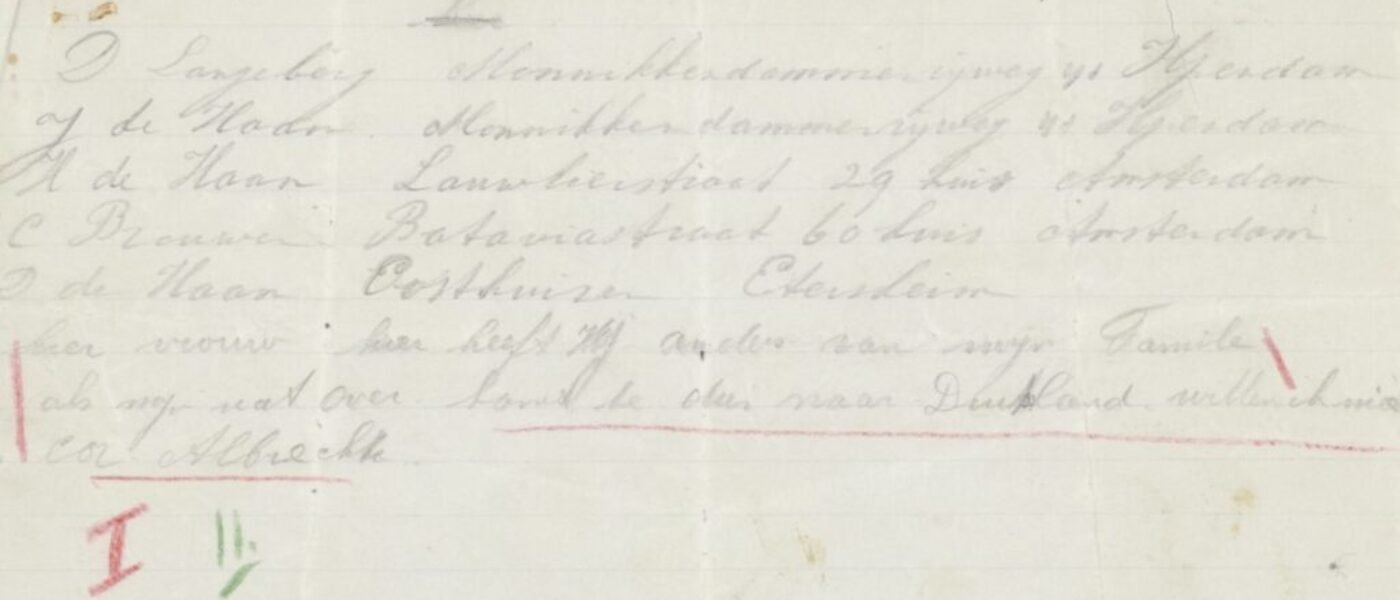 D Langeberg Monnikkendammerrijweg 41 Ilpendam
J de Haan. Monnikkendammerrijweg 41 Ilpendam
H de Haan Lauwlierstraat 29 huis Amsterdam
C Brouwer Bataviastraat 60 huis Amsterdam
D de Haan Oosthuisen Etersheim
hier vrouw hier heeft Wij ander van mijn Familie
als mijn wat over komt te dus naar Duitsland willen ik nie
Cor Albrecht
I II.